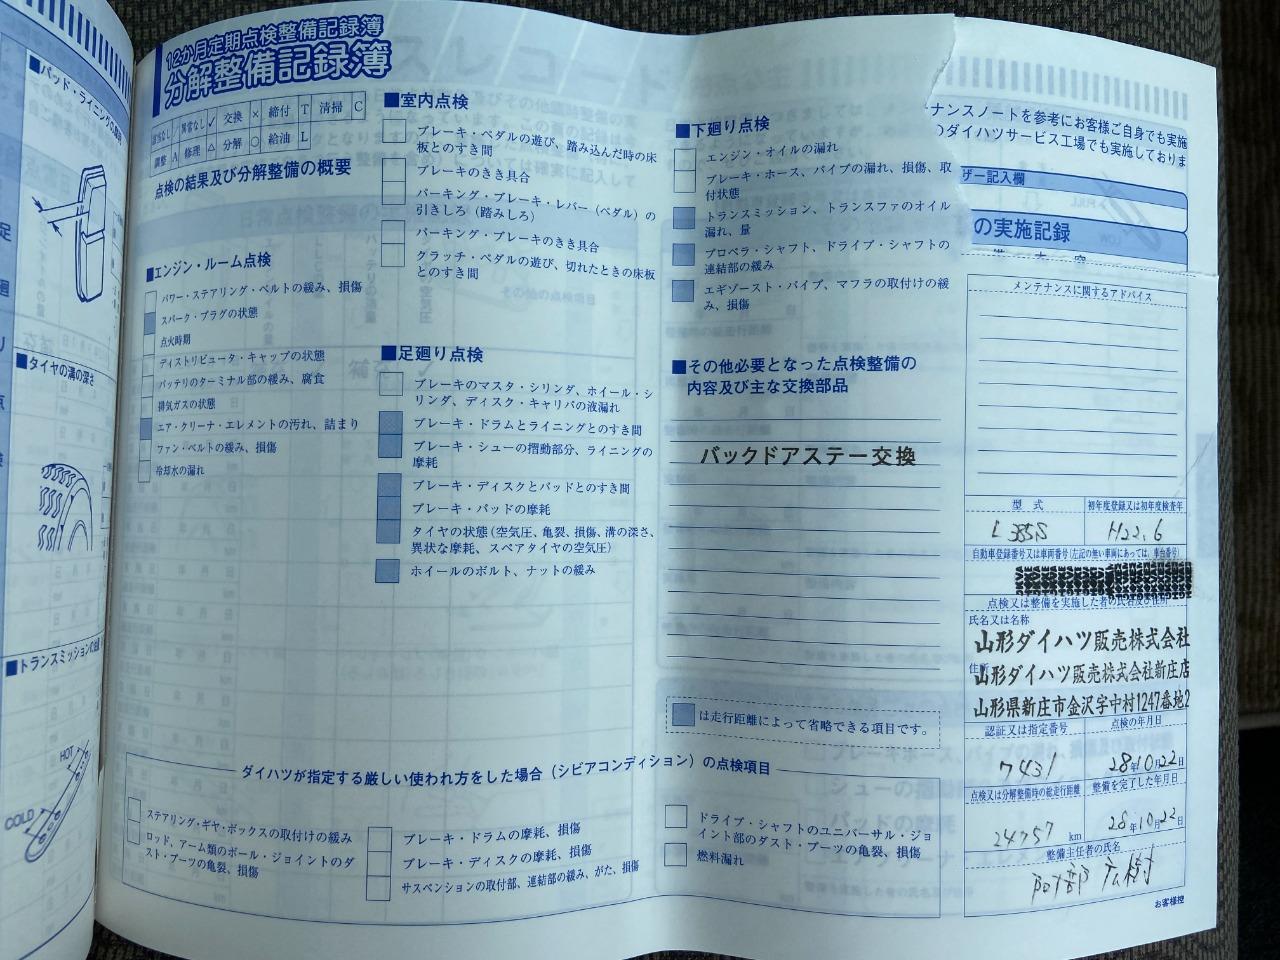 12か月定期点検整備記録簿
分解整備記録簿
該当なし / 異常なし ✓ 交換 × 締付 T 清掃 C
調整 A 修理 △ 分解 ○ 給油 L
点検の結果及び分解整備の概要
■エンジン・ルーム点検
パワー・ステアリング・ベルトの緩み、損傷
スパーク・プラグの状態
点火時期
ディストリビュータ・キャップの状態
バッテリのターミナル部の緩み、腐食
排気ガスの状態
エア・クリーナ・エレメントの汚れ、詰まり
ファン・ベルトの緩み、損傷
冷却水の漏れ
■室内点検
ブレーキ・ペダルの遊び、踏み込んだ時の床
板とのすき間
ブレーキのきき具合
パーキング・ブレーキ・レバー（ペダル）の
引きしろ（踏みしろ）
パーキング・ブレーキのきき具合
クラッチ・ペダルの遊び、切れたときの床板
とのすき間
■足廻り点検
ブレーキのマスタ・シリンダ、ホイール・シ
リンダ、ディスク・キャリパの液漏れ
ブレーキ・ドラムとライニングとのすき間
ブレーキ・シューの摺動部分、ライニングの
摩耗
ブレーキ・ディスクとパッドとのすき間
ブレーキ・パッドの摩耗
タイヤの状態（空気圧、亀裂、損傷、溝の深さ、
異状な摩耗、スペアタイヤの空気圧）
ホイールのボルト、ナットの緩み
■下廻り点検
エンジン・オイルの漏れ
ブレーキ・ホース、パイプの漏れ、損傷、取
付状態
トランスミッション、トランスファのオイル
漏れ、量
プロペラ・シャフト、ドライブ・シャフトの
連結部の緩み
エギゾースト・パイプ、マフラの取付けの緩
み、損傷
■その他必要となった点検整備の
内容及び主な交換部品
バックドアステー交換
は走行距離によって省略できる項目です。
ダイハツが指定する厳しい使われ方をした場合（シビアコンディション）の点検項目
ステアリング・ギヤ・ボックスの取付けの緩み
ロッド、アーム類のボール・ジョイントのダ
スト・ブーツの亀裂、損傷
ブレーキ・ドラムの摩耗、損傷
ブレーキ・ディスクの摩耗、損傷
サスペンションの取付部、連結部の緩み、がた、損傷
ドライブ・シャフトのユニバーサル・ジョ
イント部のダスト・ブーツの亀裂、損傷
燃料漏れ
ナンスノートを参考にお客様ご自身でも実施
のダイハツサービス工場でも実施しておりま
ザー記入欄
の実施記録
メンテナンスに関するアドバイス
型 式
初年度登録又は初年度検査年
L385S
H22.6
自動車登録番号又は車両番号（左記の無い車両にあっては、車台番号）
点検又は整備を実施した者の氏名及び住所
氏名又は名称
山形ダイハツ販売株式会社
住所
山形ダイハツ販売株式会社新庄店
山形県新庄市金沢字中村1247番地2
認証又は指定番号
点検の年月日
7431
28年10月22日
点検又は分解整備時の総走行距離
整備を完了した年月日
24757 km
28年10月22日
整備主任者の氏名
お客様控
■パッド・ライニングの
■タイヤの溝の深さ
■トランスミッションの
HOT
COLD